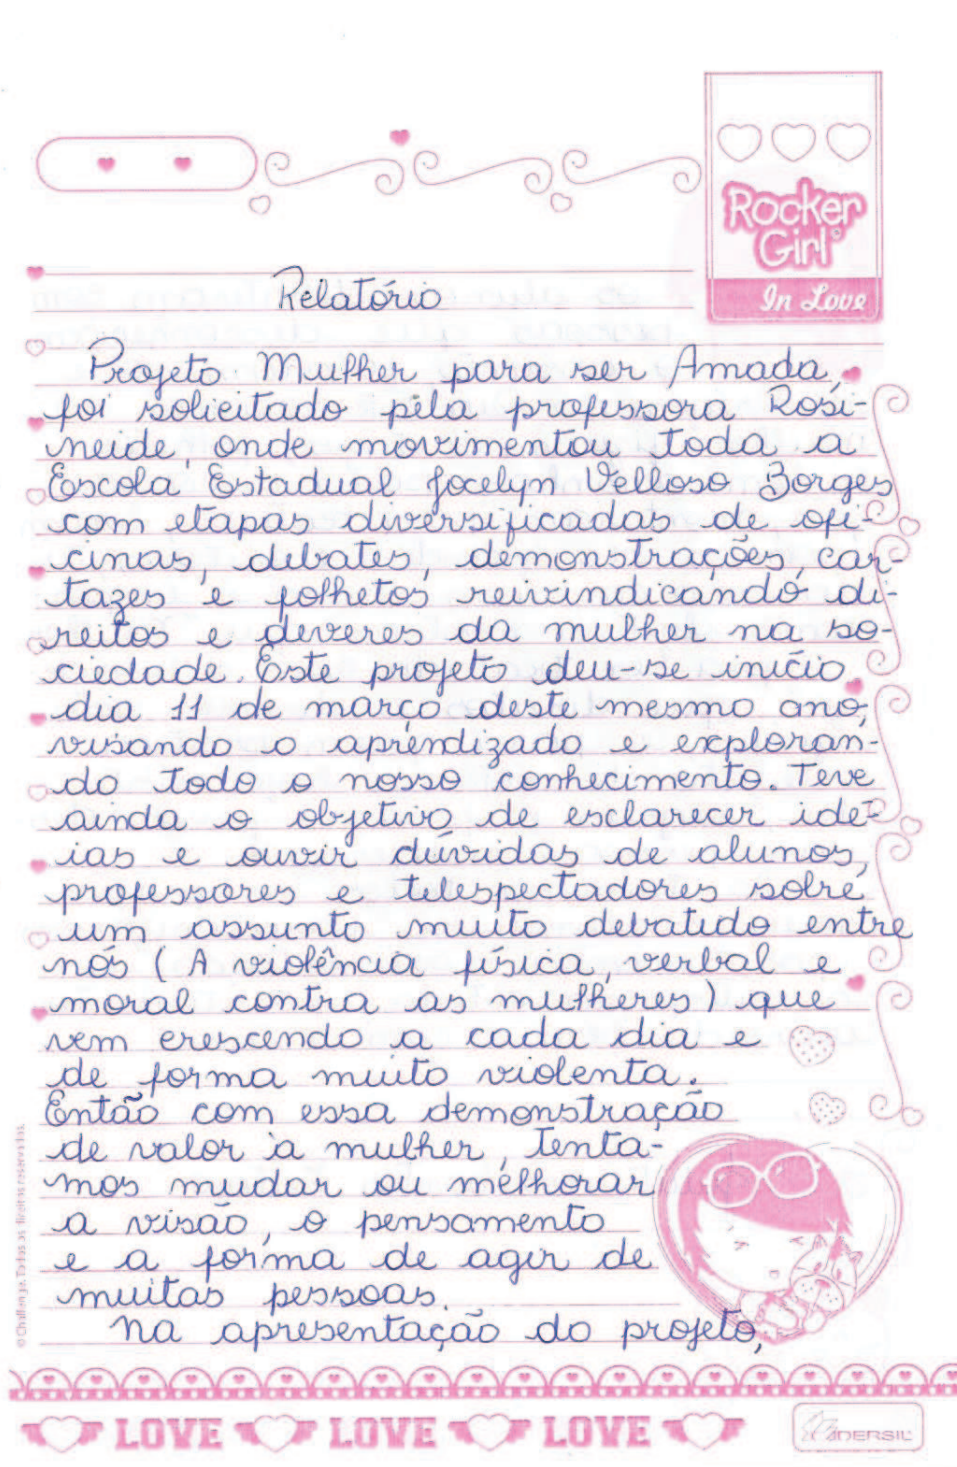 Rocker
Girl
In Love
Relatório
Projeto Mulher para ser Amada,
foi solicitado pela professora Rosi-
neide, onde movimentou toda a
Escola Estadual Jocelyn Velloso Borges
com etapas diversificadas de ofi-
cinas, debates, demonstrações, car-
tazes e folhetos reivindicando di-
reitos e deveres da mulher na so-
ciedade. Este projeto deu-se início
dia 11 de março deste mesmo ano,
visando o aprendizado e exploran-
do todo o nosso conhecimento. Teve
ainda o objetivo de esclarecer idé-
ias e ouvir dúvidas de alunos,
professores e telespectadores sobre
um assunto muito debatido entre
nós (A violência física, verbal e
moral contra as mulheres) que
vem crescendo a cada dia e
de forma muito violenta.
Então com essa demonstração
de valor à mulher, tenta-
mos mudar ou melhorar
a visão, o pensamento
e a forma de agir de
muitas pessoas.
Na apresentação do projeto,
© Challenge. Todos os direitos reservados.
LOVE LOVE LOVE